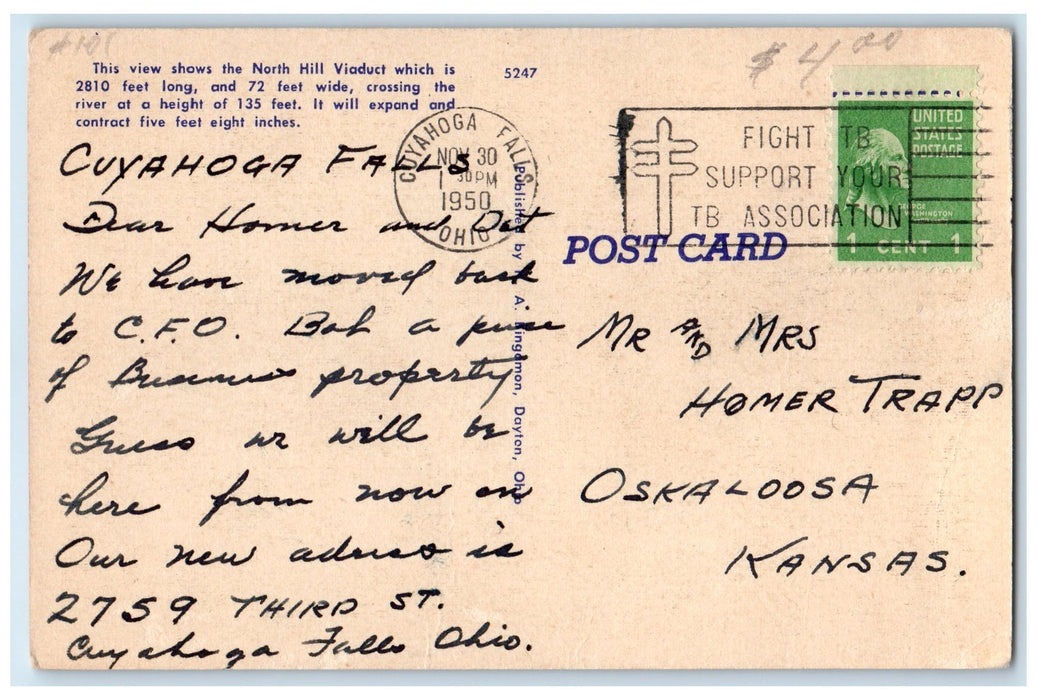 This view shows the North Hill Viaduct which is
2810 feet long, and 72 feet wide, crossing the
river at a height of 135 feet. It will expand and
contract five feet eight inches.
5247
$4.00
CUYAHOGA FALLS
Dear Homer and Dot
We have moved back
to C.F.O. Boh a piese
of Business property
Guess we will be
here from now on
Our new adress is
2759 THIRD ST.
Cuyahoga Falls Ohio.
CUYAHOGA FALLS
NOV 30
1 30 PM
1950
OHIO
Published by A. Kingdmon, Dayton, Ohio
FIGHT TB
SUPPORT YOUR
TB ASSOCIATION
UNITED
STATES
POSTAGE
GEORGE
WASHINGTON
1 CENT 1
POST CARD
MR AND MRS
HOMER TRAPP
OSKALOOSA
KANSAS.